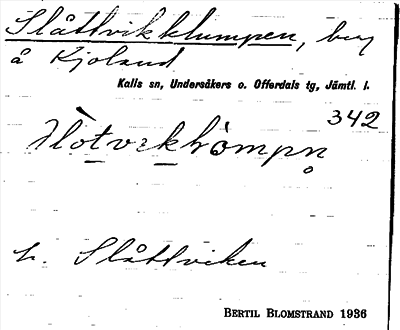 Slåttvikklumpen, berg
å Kjoland
Kalls sn, Undersåkers o. Offerdals tg, Jämtl. l.
342
h. Slåttviken
BERTIL BLOMSTRAND 1936